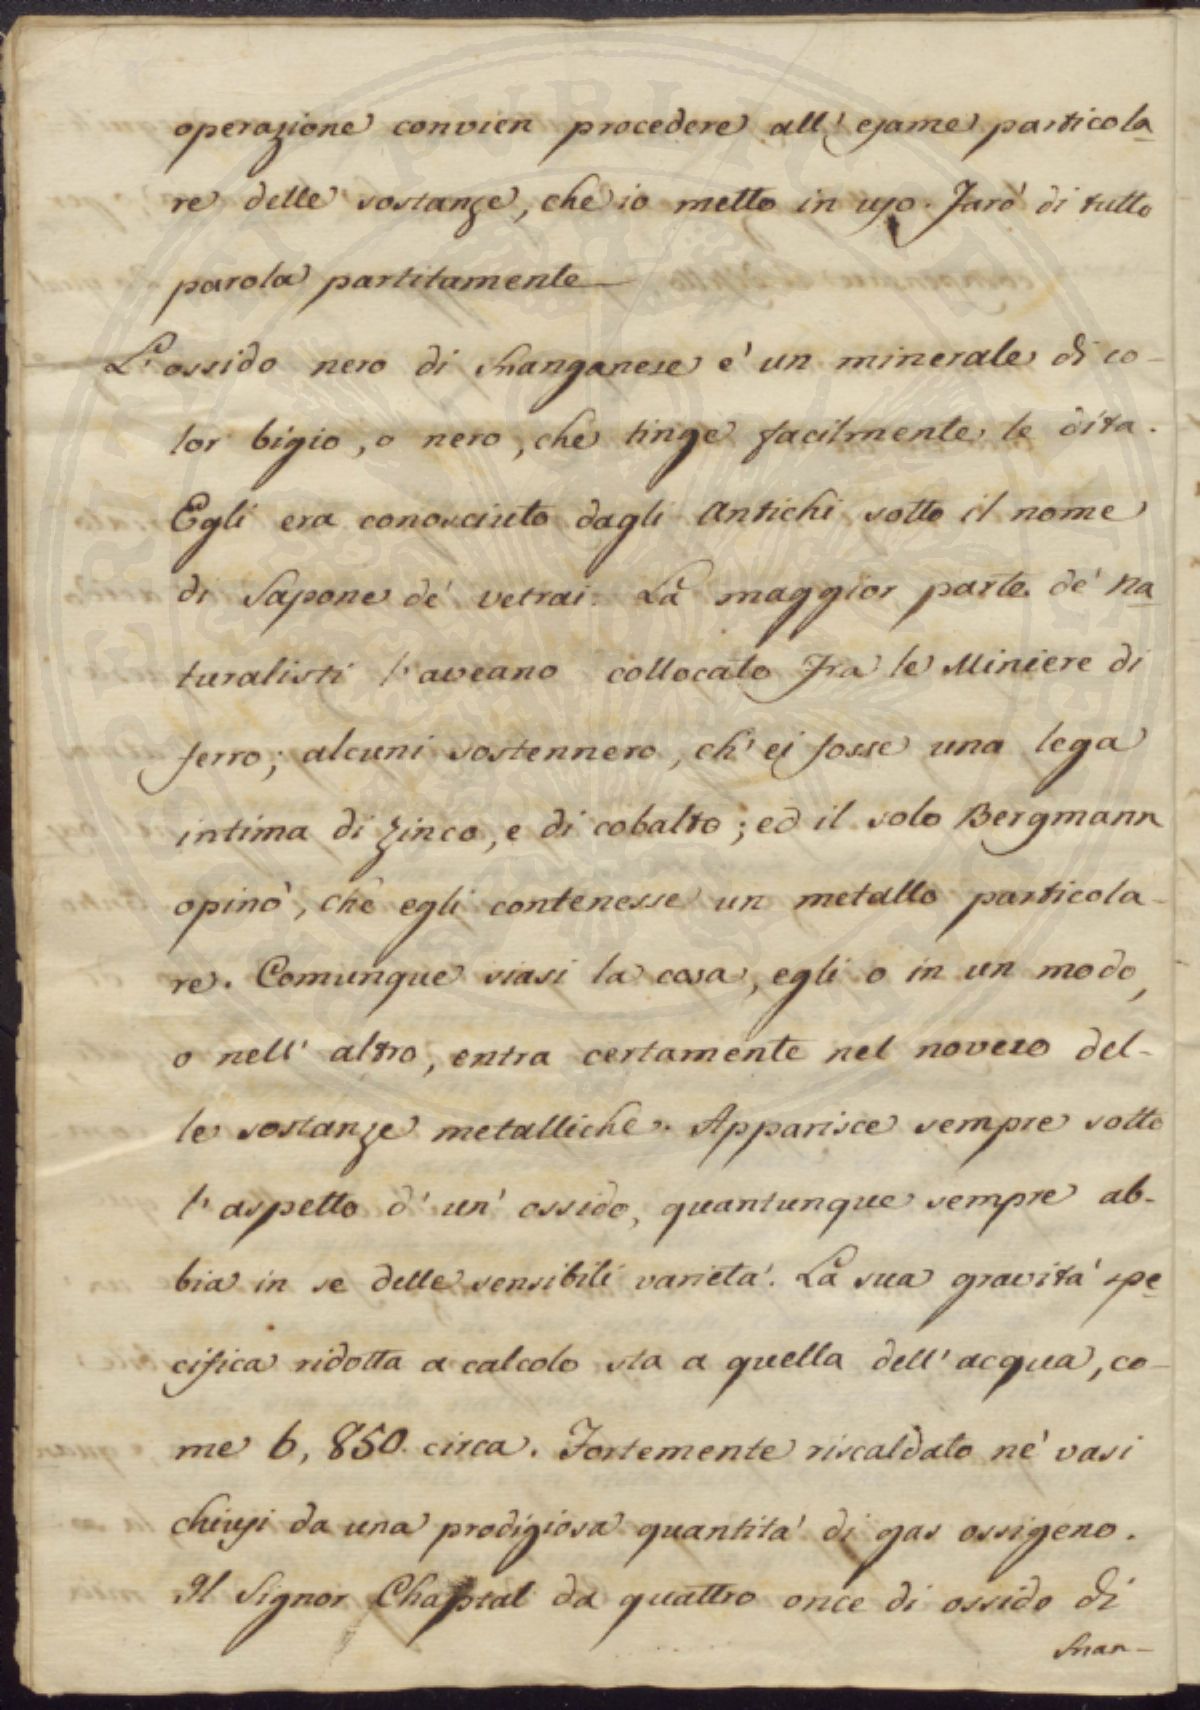 operazione convien procedere all' esame particola
re delle sostanze, che io metto in uso. Farò di tutto
parola partitamente
L'ossido nero di Manganese e' un minerale di co-
lor bigio, o nero, che tinge facilmente le dita.
Egli era conosciuto dagli Antichi sotto il nome
di Sapone de' vetrai. La maggior parte de' na
turalisti l'aveano collocato Fra le Miniere di
ferro; alcuni sostennero, ch' ei fosse una lega
intima di zinco, e di cobalto; ed il solo Bergmann
opinò, che egli contenesse un metallo particola-
re. Comunque siasi la cosa, egli o in un modo,
o nell' altro, entra certamente nel novero del-
le sostanze metalliche. Apparisce sempre sotto
l'aspetto d' un' ossido, quantunque sempre ab-
bia in se delle sensibili varieta'. La sua gravita' spe
cifica ridotta a calcolo sta a quella dell' acqua, co-
me 6, 850 circa. Fortemente riscaldato ne' vasi
chiusi da una prodigiosa quantita' di gas ossigeno.
Il Signor Chaptal da quattro once di ossido di
Man-